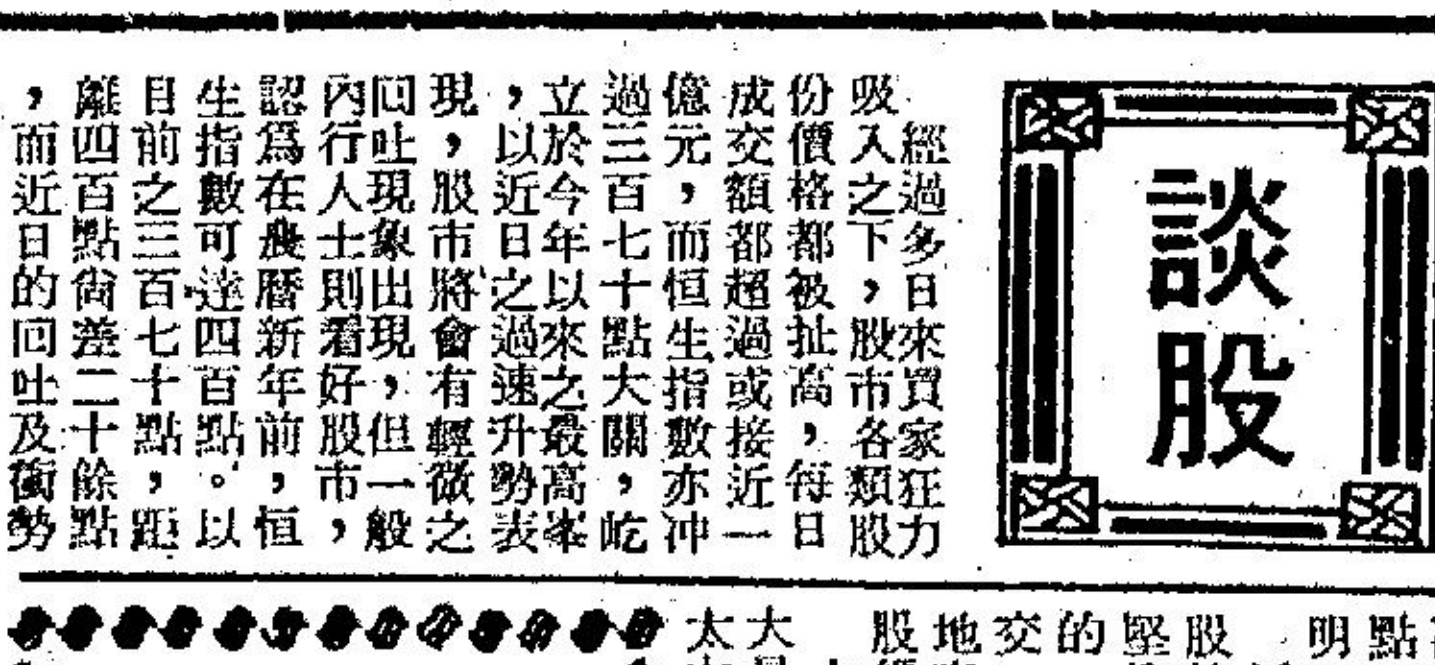 談股
經過多日來買家狂力
吸入之下，股市各類股
份價格都被扯高，每日
成交額都超過或接近一
億元，而恒生指數亦冲
過三百七十點大關，屹
立於今年以來之最高峯
，以近日之過速升勢表
現，股市將會有輕微之
回吐現象出現，但一般
內行人士則看好股市，
認爲在農曆新年前，恒
生指數可達四百點。以
目前之三百七十點，距
離四百點尙差二十餘點
，而近日的回吐及衝勢
點
明
股
堅
的
交
地
股
大
太